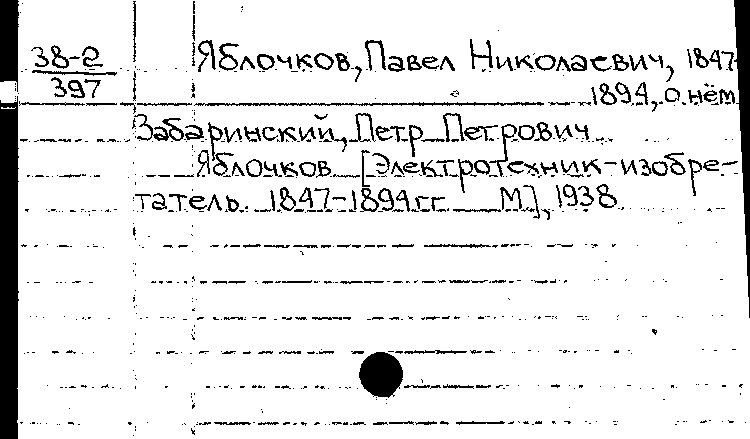 38-2
397
Яблочков, Павел Николаевич, 1847-
1894, о нём
Забаринский, Петр Петрович
Яблочков [Электротехник-изобре-
татель. 1847-1894 гг М], 1938